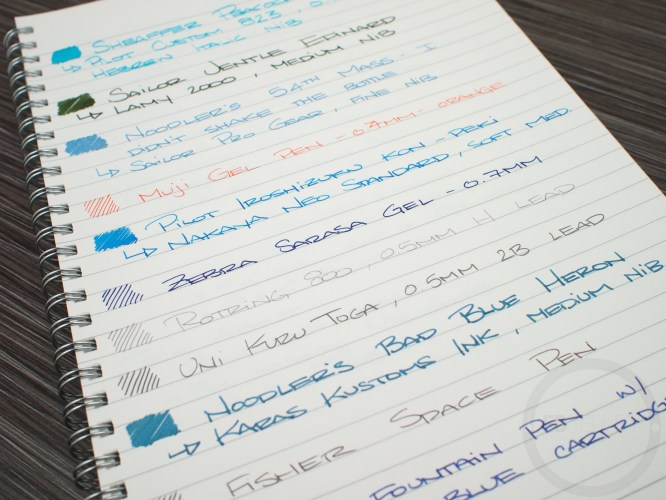 SHEAFFER PEACOCK
↳ PILOT CUSTOM 823,
HEBREN ITALIC NIB
SAILOR JENTLE EPINARD
↳ LAMY 2000, MEDIUM NIB
NOODLER'S 54TH MASS - I
DIDN'T SHAKE THE BOTTLE
↳ SAILOR PRO GEAR, FINE NIB
MUJI GEL PEN - 0.4MM - ORANGE
PILOT IROSHIZUKU KON-PEKI
↳ NAKAYA NEO STANDARD, SOFT MED.
ZEBRA SARASA GEL - 0.7MM
ROTRING 800, 0.5MM H LEAD
UNI KURU TOGA, 0.5MM 2B LEAD
NOODLER'S BAD BLUE HERON
↳ KARAS KUSTOMS INK, MEDIUM NIB
FISHER SPACE PEN
FOUNTAIN PEN W/
BLUE CARTRIDGE